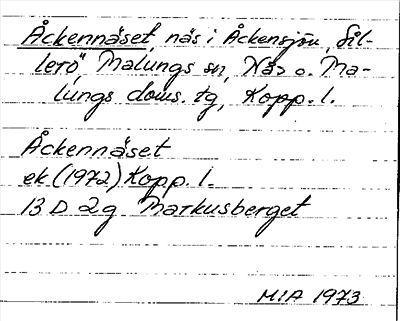 Åckennäset, näs i Åckensjön, Sil-
lerö, Malungs sn, Nås o. Ma-
lungs doms. tg, Kopp. l.
Åckennäset
ek (1972) Kopp. l.
13 D 2g Markusberget
MIA 1973